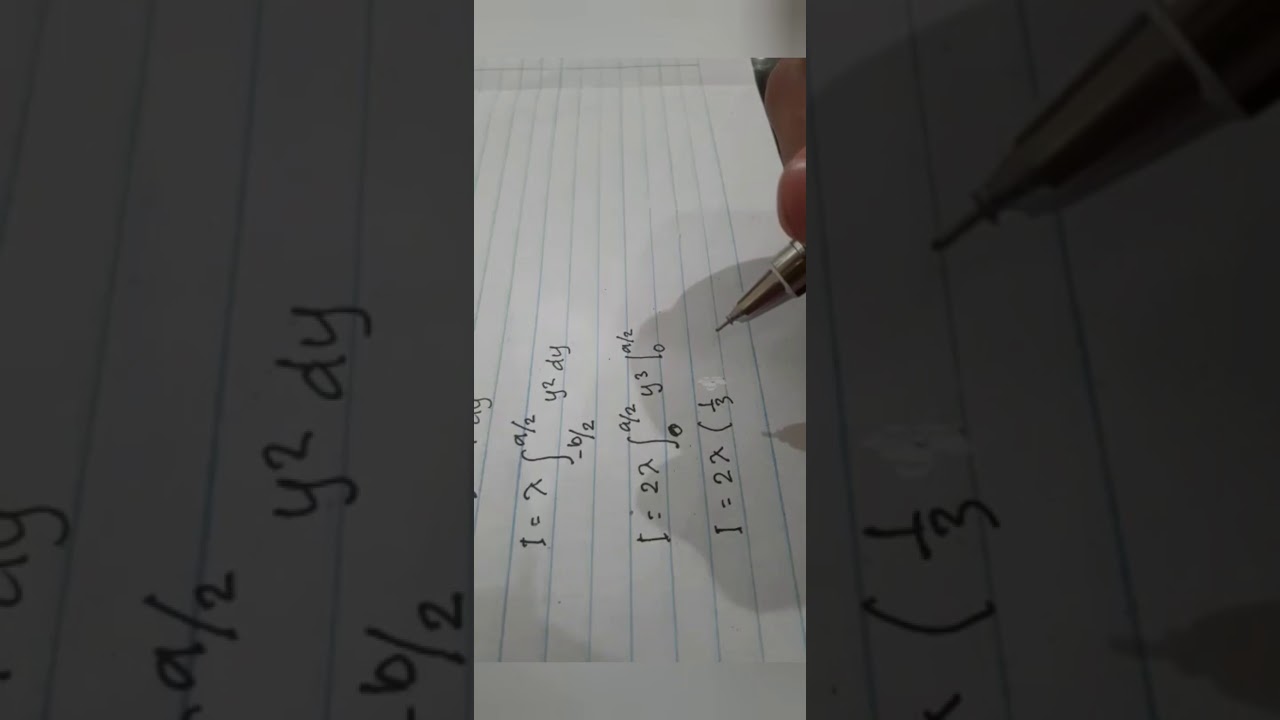 dy
I = λ ∫_{-b/2}^{a/2} y² dy
I = 2λ ∫_0^{a/2} y³ |_0^{a/2}
I = 2λ ( 1/3